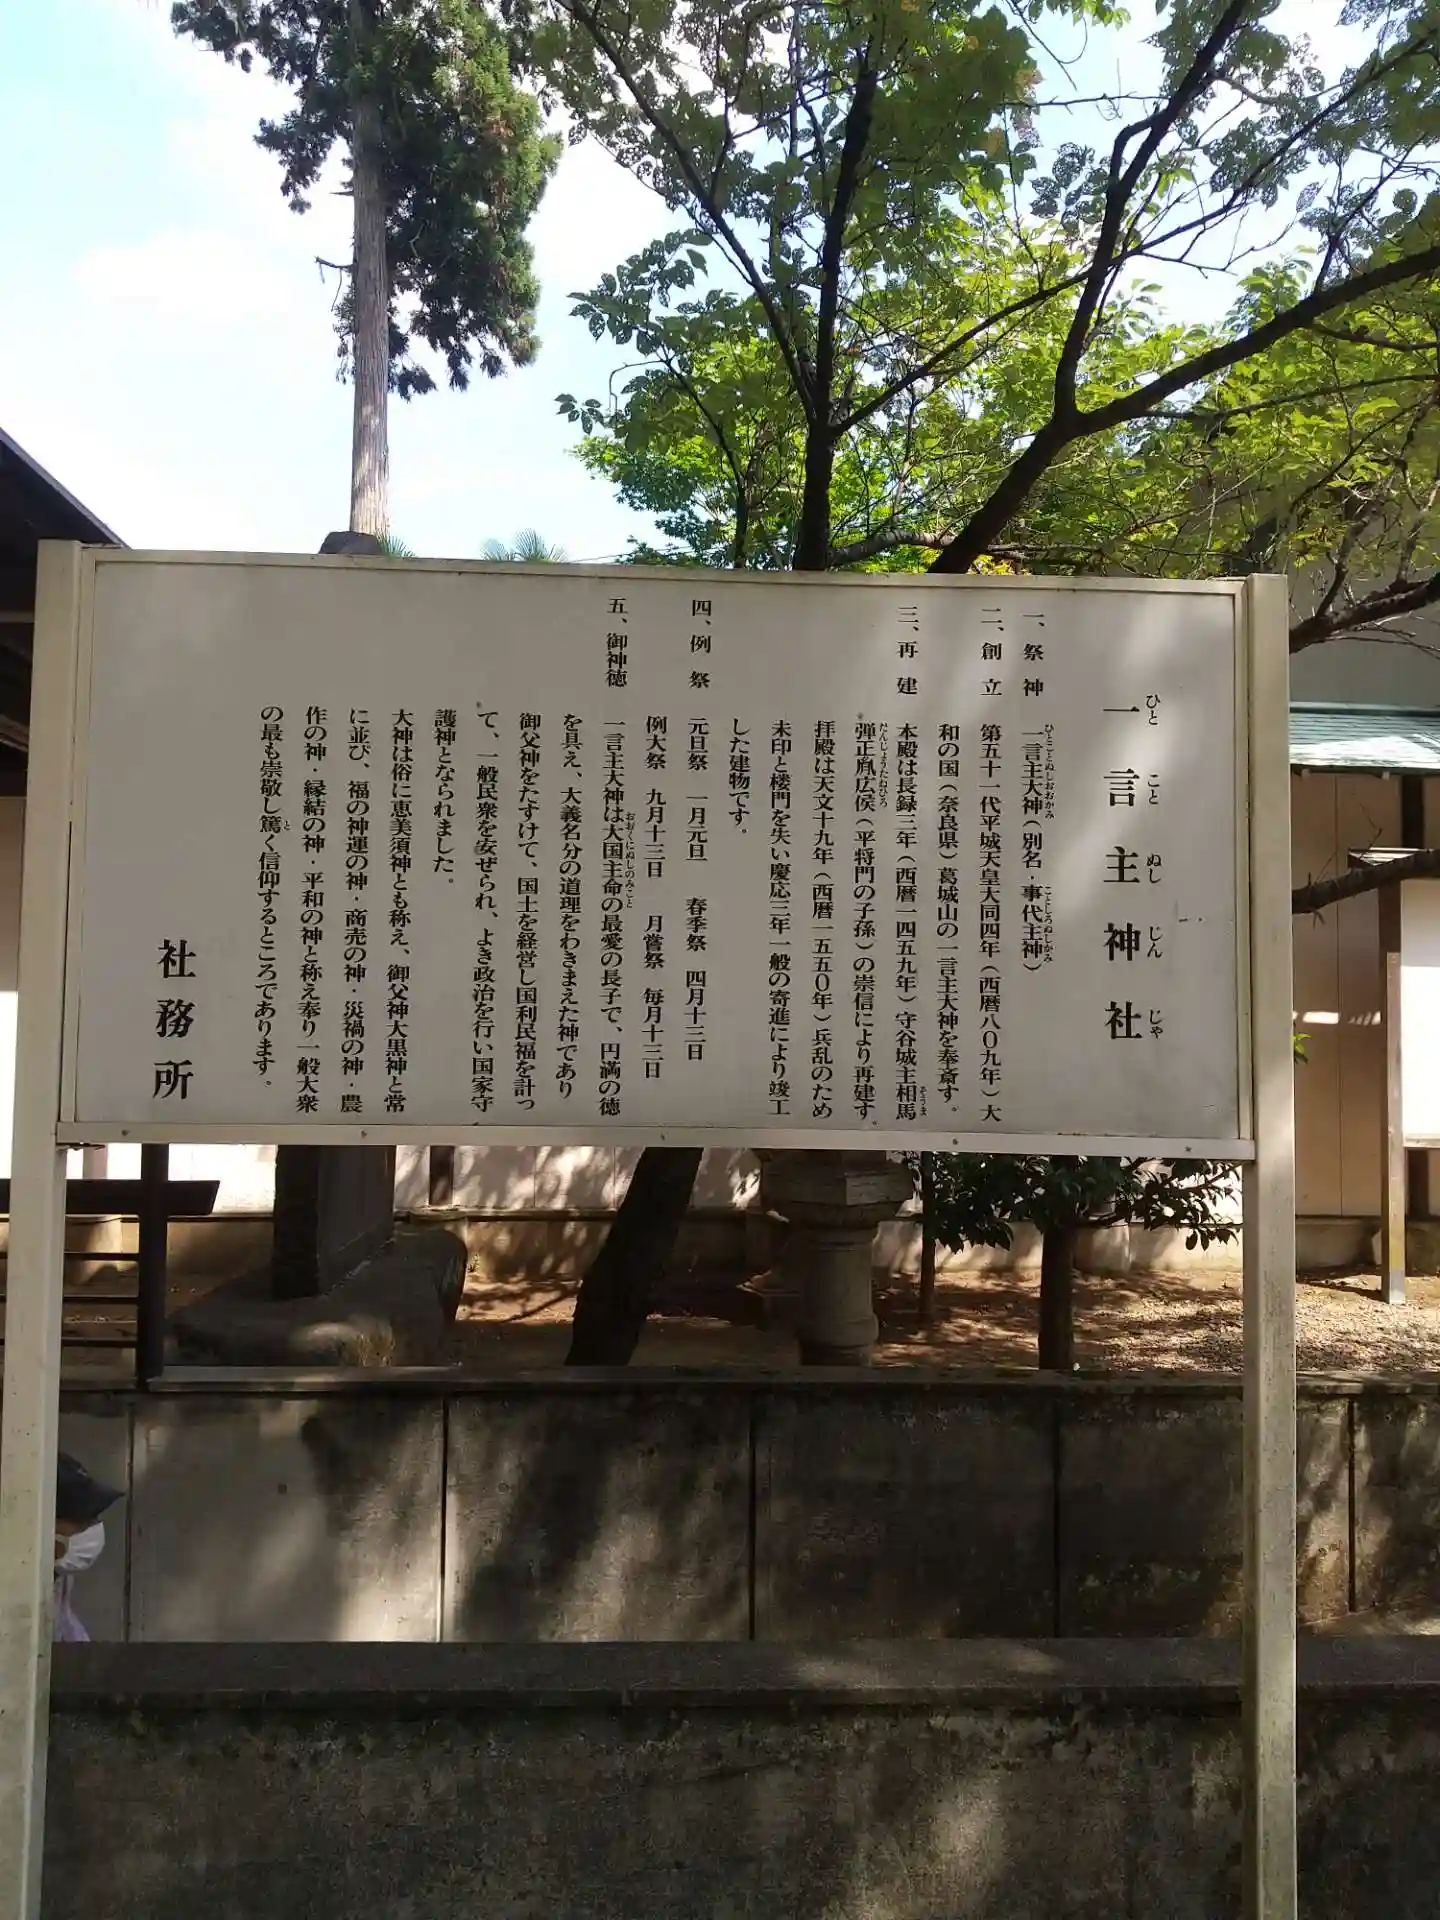 一言主神社
ひとことぬしじんじゃ
一、祭神　一言主大神（別名・事代主神）
ひとことぬしおおかみ　ことしろぬしがみ
二、創立　第五十一代平城天皇大同四年（西暦八〇九年）大
和の国（奈良県）葛城山の一言主大神を奉斎す。
三、再建　本殿は長録三年（西暦一四五九年）守谷城主相馬
そうま
弾正胤広侯（平将門の子孫）の崇信により再建す。
だんじょうたねひろ
拝殿は天文十九年（西暦一五五〇年）兵乱のため
未印と楼門を失い慶応三年一般の寄進により竣工
した建物です。
四、例祭　元旦祭　一月元旦　春季祭　四月十三日
例大祭　九月十三日　月嘗祭　毎月十三日
五、御神徳　一言主大神は大国主命の最愛の長子で、円満の徳
おおくにぬしのみこと
を具え、大義名分の道理をわきまえた神であり
御父神をたすけて、国土を経営し国利民福を計っ
て、一般民衆を安ぜられ、よき政治を行い国家守
護神となられました。
大神は俗に恵美須神とも称え、御父神大黒神と常
に並び、福の神運の神・商売の神・災禍の神・農
作の神・縁結の神・平和の神と称え奉り一般大衆
の最も崇敬し篤く信仰するところであります。
と
社務所